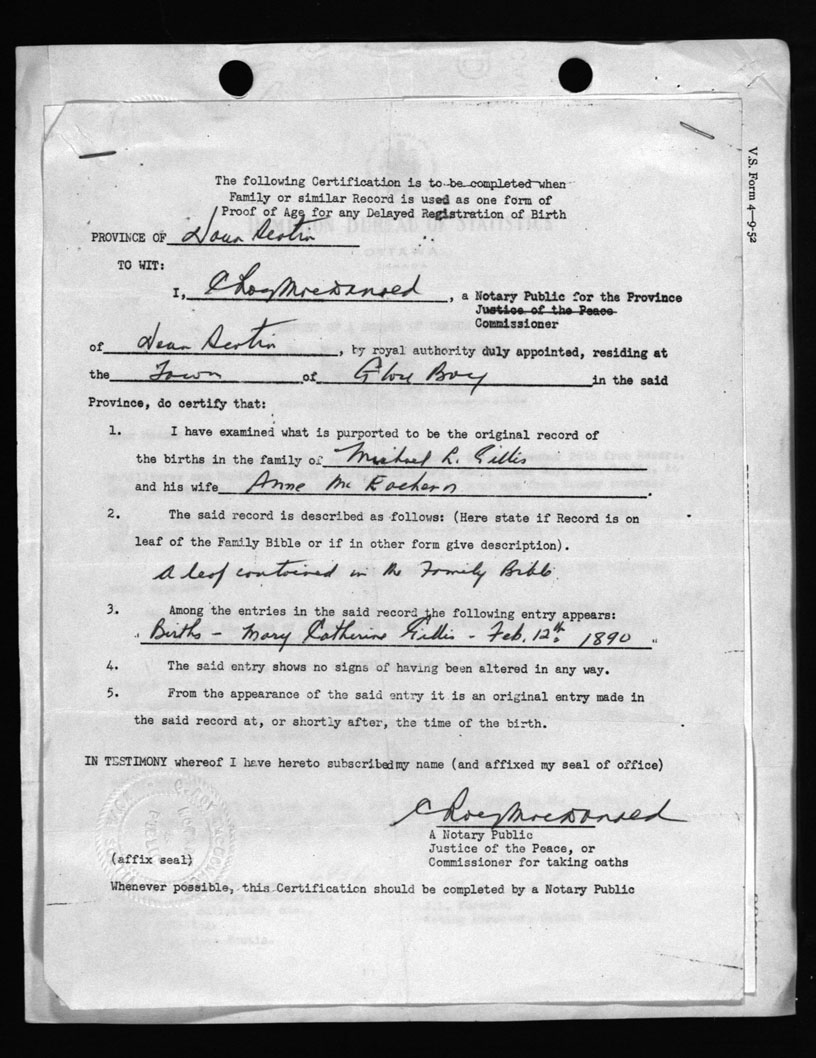 The following Certification is to be completed when
Family or similar Record is used as one form of
Proof of Age for any Delayed Registration of Birth
DOMINION BUREAU OF STATISTICS
OTTAWA
PROVINCE OF Nova Scotia
TO WIT:
I, C Roy MacDonald, a Notary Public for the Province
Justice of the Peace
Commissioner
of Nova Scotia, by royal authority duly appointed, residing at
the Town of Glace Bay in the said
Province, do certify that:
1. I have examined what is purported to be the original record of
the births in the family of Michael R. Gillis
and his wife Anne McEachern.
2. The said record is described as follows: (Here state if Record is on
leaf of the Family Bible or if in other form give description).
A leaf contained in the Family Bible
3. Among the entries in the said record the following entry appears:
"Births - Mary Catherine Gillis - Feb. 12th 1890"
4. The said entry shows no signs of having been altered in any way.
5. From the appearance of the said entry it is an original entry made in
the said record at, or shortly after, the time of the birth.
IN TESTIMONY whereof I have hereto subscribed my name (and affixed my seal of office)
C Roy MacDonald
A Notary Public
Justice of the Peace, or
Commissioner for taking oaths
(affix seal)
Whenever possible, this Certification should be completed by a Notary Public
V.S. Form 4-9-52